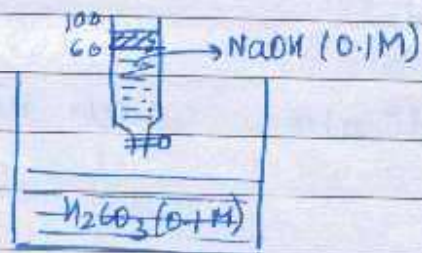 100
60 NaOH (0.1M)
H₂CO₃ (0.1M)